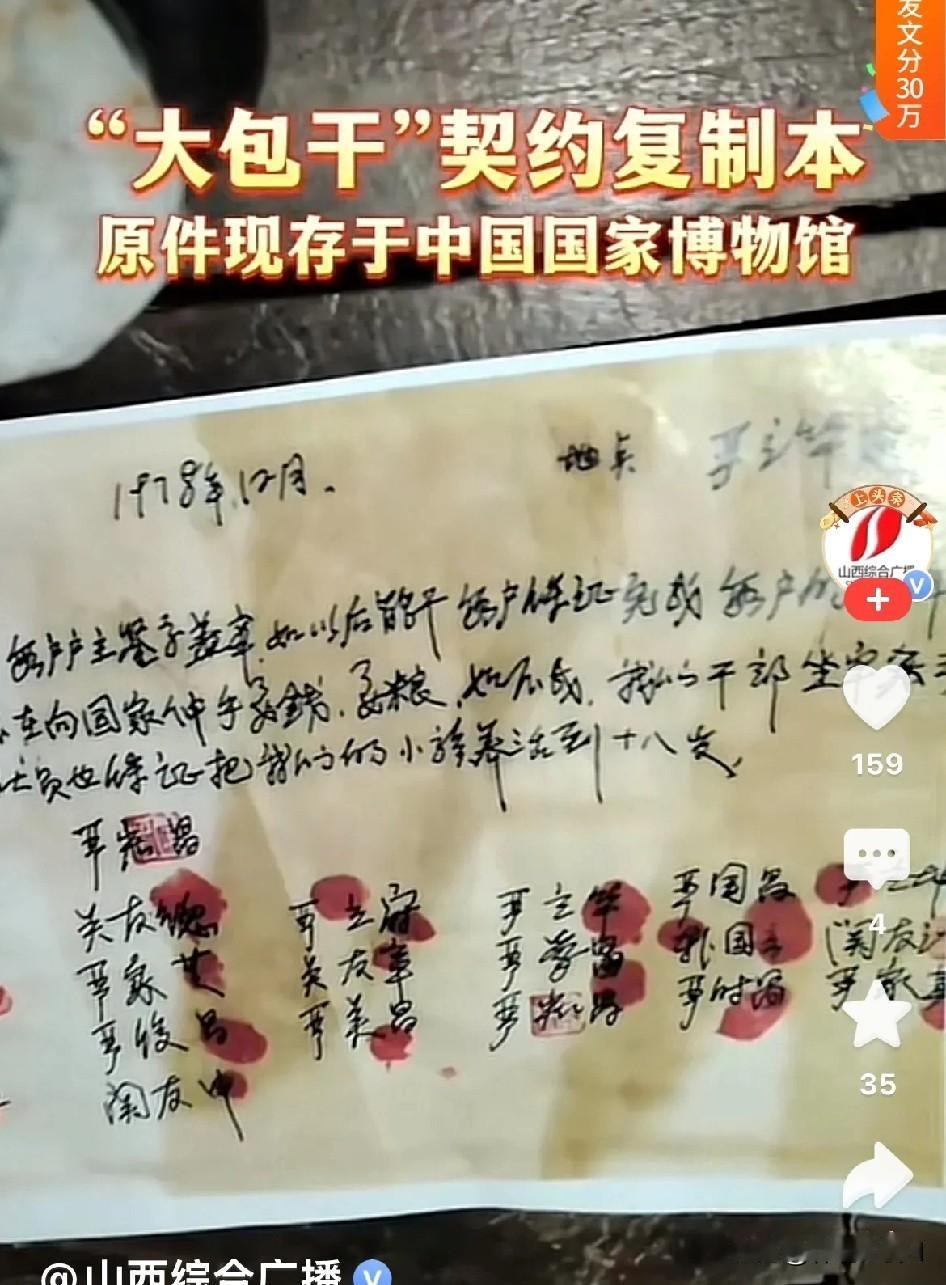 发文分30万
“大包干”契约复制本
原件现存于中国国家博物馆
1978年12月. 地点 严立华
每户户主签字盖章,如以后能干 每户保证完成 每户
在向国家伸手要钱.要粮,如不成,我们干部坐牢
社员也保证把我们的小孩养活到十八岁.
严宏昌
关友德 严立富 严立华 严国昌
严家芝 关友章 严学昌 韩国云 关友江
严俊昌 严美昌 严宏昌 严付昌 严家其
关友申
上头条
山西综合广播
159
4
35
@山西综合广播